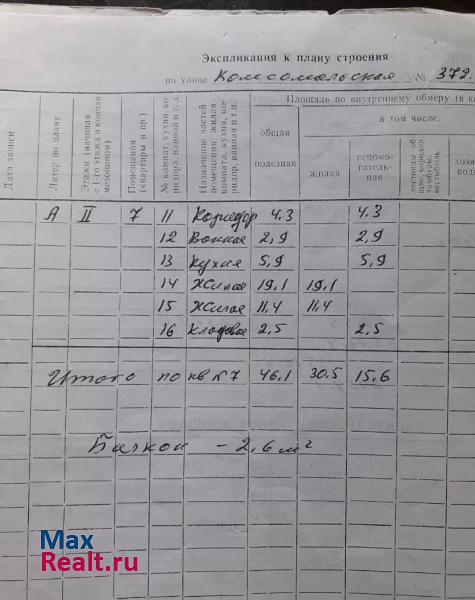 Экспликация к плану строения
по улице Комсомольская № 379.
Дата записи
Литер по плану
Этажи (начиная с 1-го этажа и кончая мезонином)
Помещения (квартиры и пр)
№ комнат, кухни, коридора, ванной и т. д.
Назначение частей помещения: жилая комната, кухня, коридор, ванная и т п.
Площадь по внутреннему обмеру (в к
общая полезная
в том числе.
жилая
вспомогательная
лестницы общие, коридор тамбуры, вестибюль
хозя
А II 7 11 Коридор 4.3 4.3
12 Ванная 2,9 2,9
13 Кухня 5,9 5,9
14 Жилая 19,1 19,1
15 Жилая 11,4 11,4
16 Кладовая 2,5 2,5
Итого по кв №7 46.1 30.5 15.6
Балкон - 2,6 м²
Max
Realt.ru